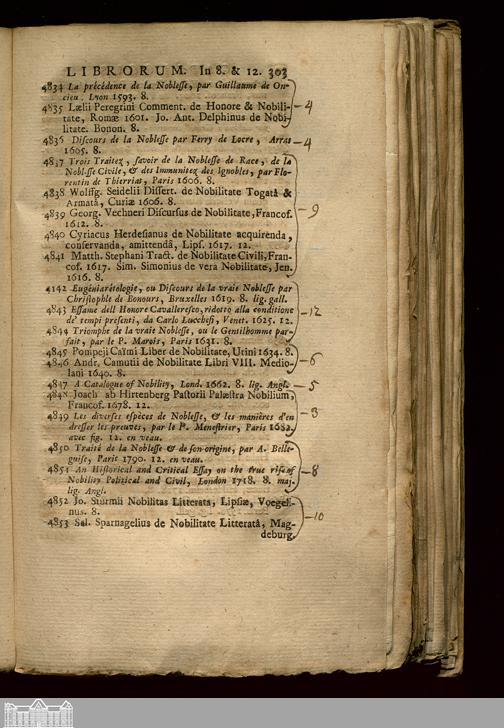 LIBRORUM. In 8. & 12. 303
4834 La précédence de la Noblesse, par Guillaume de On-
cieu, Lyon 1593. 8.
4835 Lælii Peregrini Comment. de Honore & Nobili-
tate, Romæ 1601. Jo. Ant. Delphinus de Nobi-
litate. Bonon. 8. - 4
4836 Discours de la Noblesse par Ferry de Locre, Arras
1605. 8. - 4
4837 Trois Traitez, savoir de la Noblesse de Race, de la
Noblesse Civile, & des Immunitez des Ignobles, par Flo-
rentin de Thierriat, Paris 1606. 8.
4838 Wolffg. Seidelii Dissert. de Nobilitate Togatâ &
Armatâ, Curiæ 1606. 8.
4839 Georg. Vechneri Discursus de Nobilitate, Francof. - 9
1612. 8.
4840 Cyriacus Herdesianus de Nobilitate acquirenda,
conservanda, amittendâ, Lips. 1617. 12.
4841 Matth. Stephani Tract. de Nobilitate Civili, Fran-
cof. 1617. Sim. Simonius de vera Nobilitate, Jen.
1616. 8.
4142 Eugéniarétologie, ou Discours de la vraie Noblesse par
Christophle de Bonours, Bruxelles 1619. 8. lig. gall.
4843 Essame dell Honore Cavalleresco, ridotto alla conditione - 12
de' tempi presenti, da Carlo Lucchesi, Venet. 1625. 12.
4844 Triomphe de la vraie Noblesse, ou le Gentilhomme par-
fait, par le P. Marois, Paris 1631. 8.
4845 Pompeji Caïmi Liber de Nobilitate, Utini 1634. 8.
4846 Andr. Camutii de Nobilitate Libri VIII. Medio- - 6
lani 1640. 8.
4847 A Catalogue of Nobility, Lond. 1662. 8. lig. Angl. - 5
4848 Joach ab Hirtenberg Pastorii Palæstra Nobilium,
Francof. 1678. 12.
4849 Les diverses espèces de Noblesse, & les manières d'en - 3
dresser les preuves, par le P. Menestrier, Paris 1682.
avec fig. 12. en veau.
4850 Traité de la Noblesse & de son origine, par A. Belle-
guise, Paris 1700. 12. en veau.
4851 An Historical and Critical Essay on the true rise of - 8
Nobility Political and Civil, London 1718. 8. maj.
lig. Angl.
4852 Jo. Sturmii Nobilitas Litterata, Lipsiæ, Voegeli-
nus. 8. - 10
4853 Sal. Sparnagelius de Nobilitate Litteratâ, Mag-
deburg.